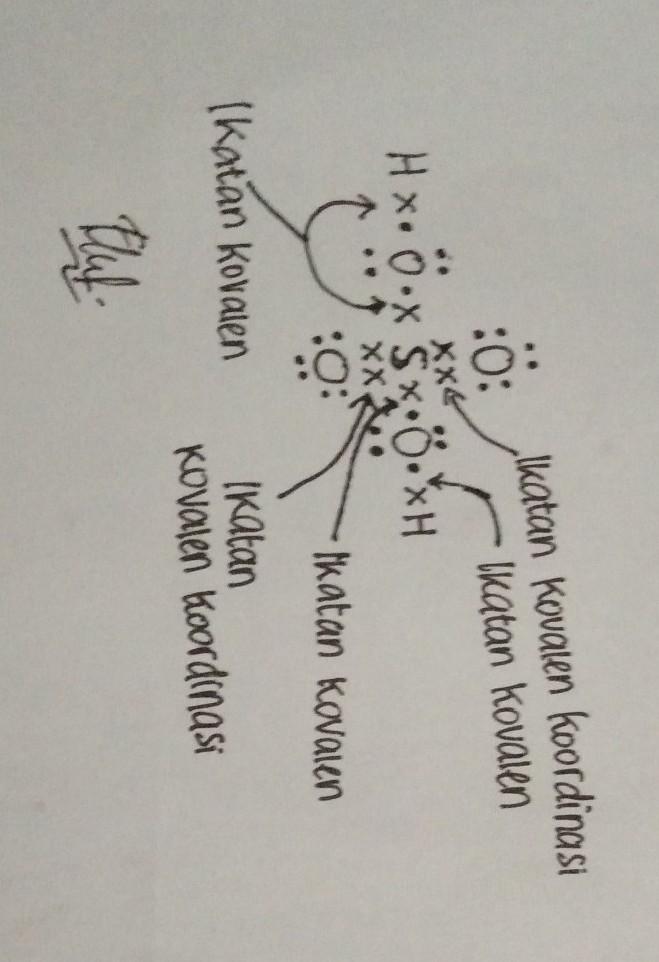 Ikatan kovalen koordinasi
Ikatan kovalen
:Ö:
xx
H x. Ö .x S x. Ö .x H
xx
:O:
..
Ikatan kovalen
Ikatan kovalen
Ikatan
kovalen koordinasi